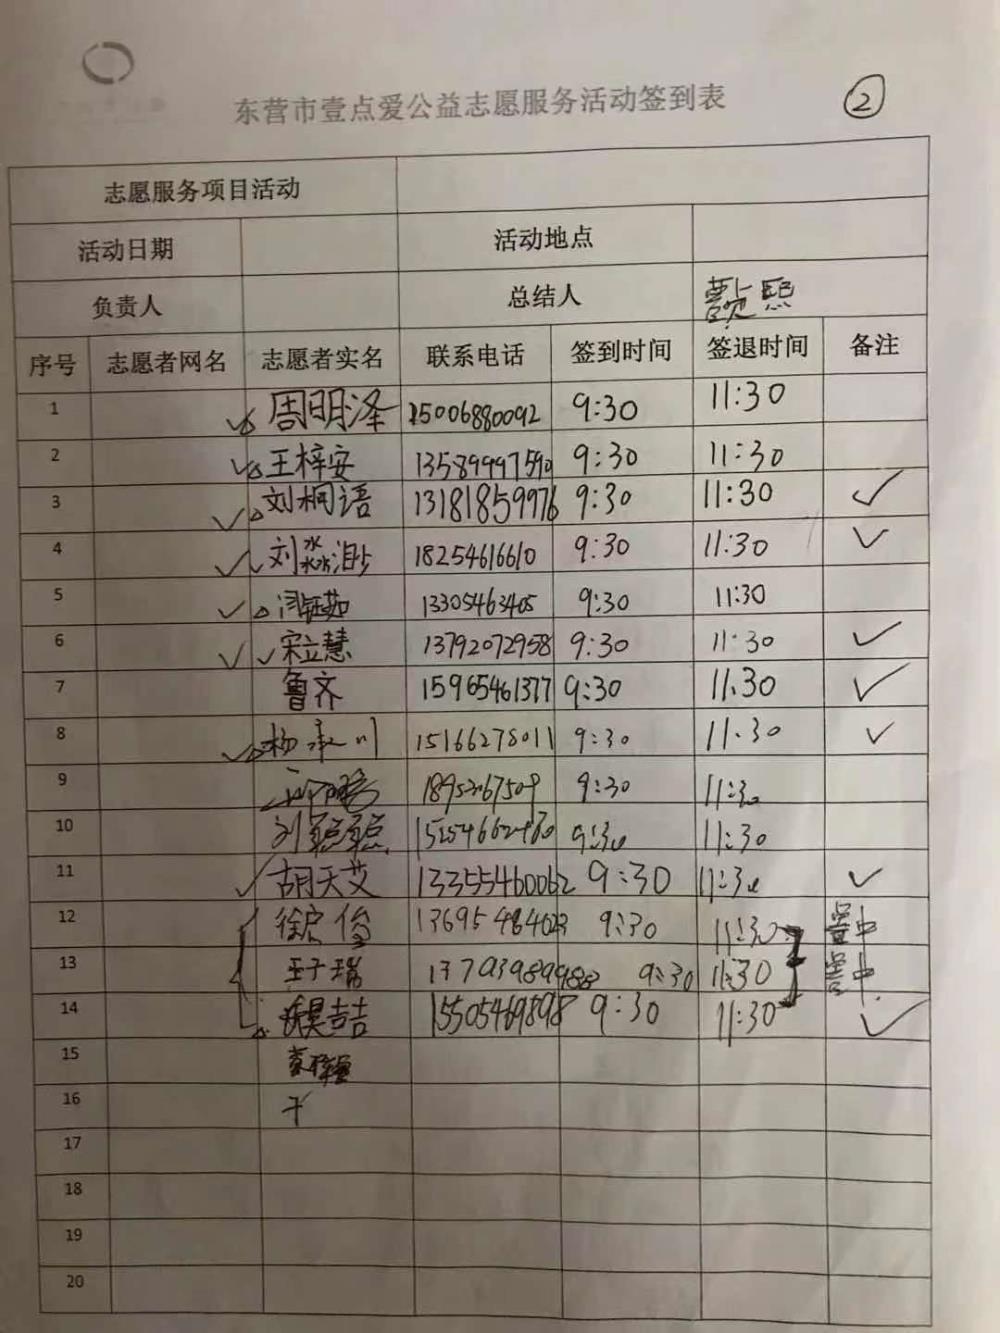 东营市壹点爱公益志愿服务活动签到表 ②
志愿服务项目活动
活动日期 活动地点
负责人 总结人 熙
序号 志愿者网名 志愿者实名 联系电话 签到时间 签退时间 备注
1 周明泽 15006880092 9:30 11:30
2 王梓安 13589997590 9:30 11:30
3 ✓ 刘桐语 13181859976 9:30 11:30 ✓
4 ✓ 刘淼渺 18254616610 9:30 11:30 ✓
5 ✓ 闫钰茹 13305463405 9:30 11:30
6 ✓ ✓ 宋立慧 13792072958 9:30 11:30 ✓
7 鲁齐 15965461377 9:30 11:30 ✓
8 ✓ 杨承川 15166278011 9:30 11:30 ✓
9 9:30 11:30
10 刘 9:30 11:30
11 ✓ 胡天艾 13355460062 9:30 11:30 ✓
12 俊 9:30 11:30
13 王子瑞 9:30 11:30
14 昊吉吉 15505469898 9:30 11:30 ✓
15
16
17
18
19
20